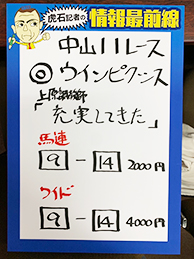 虎石記者の
情報最前線
中山11レース
◎ウインピクシス
上原調教師
「充実してきた」
馬連
9 - 14 2000円
ワイド
9 - 14 4000円